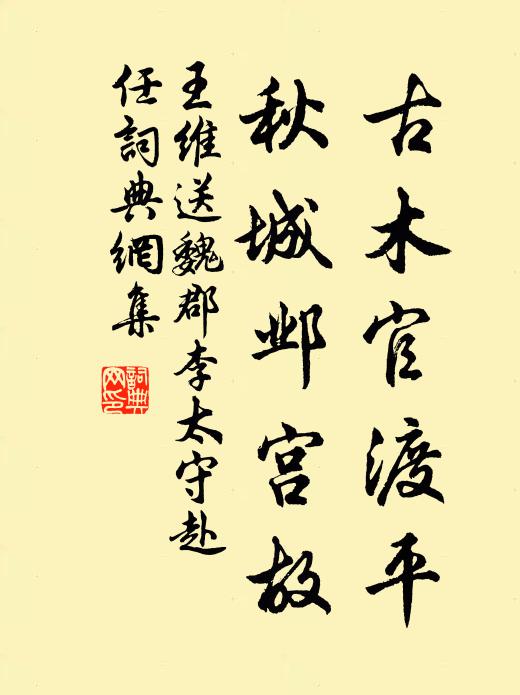 古木官渡平
秋城邺宫故
王维送魏郡李太守赴
任詞典網集
詞典
网印